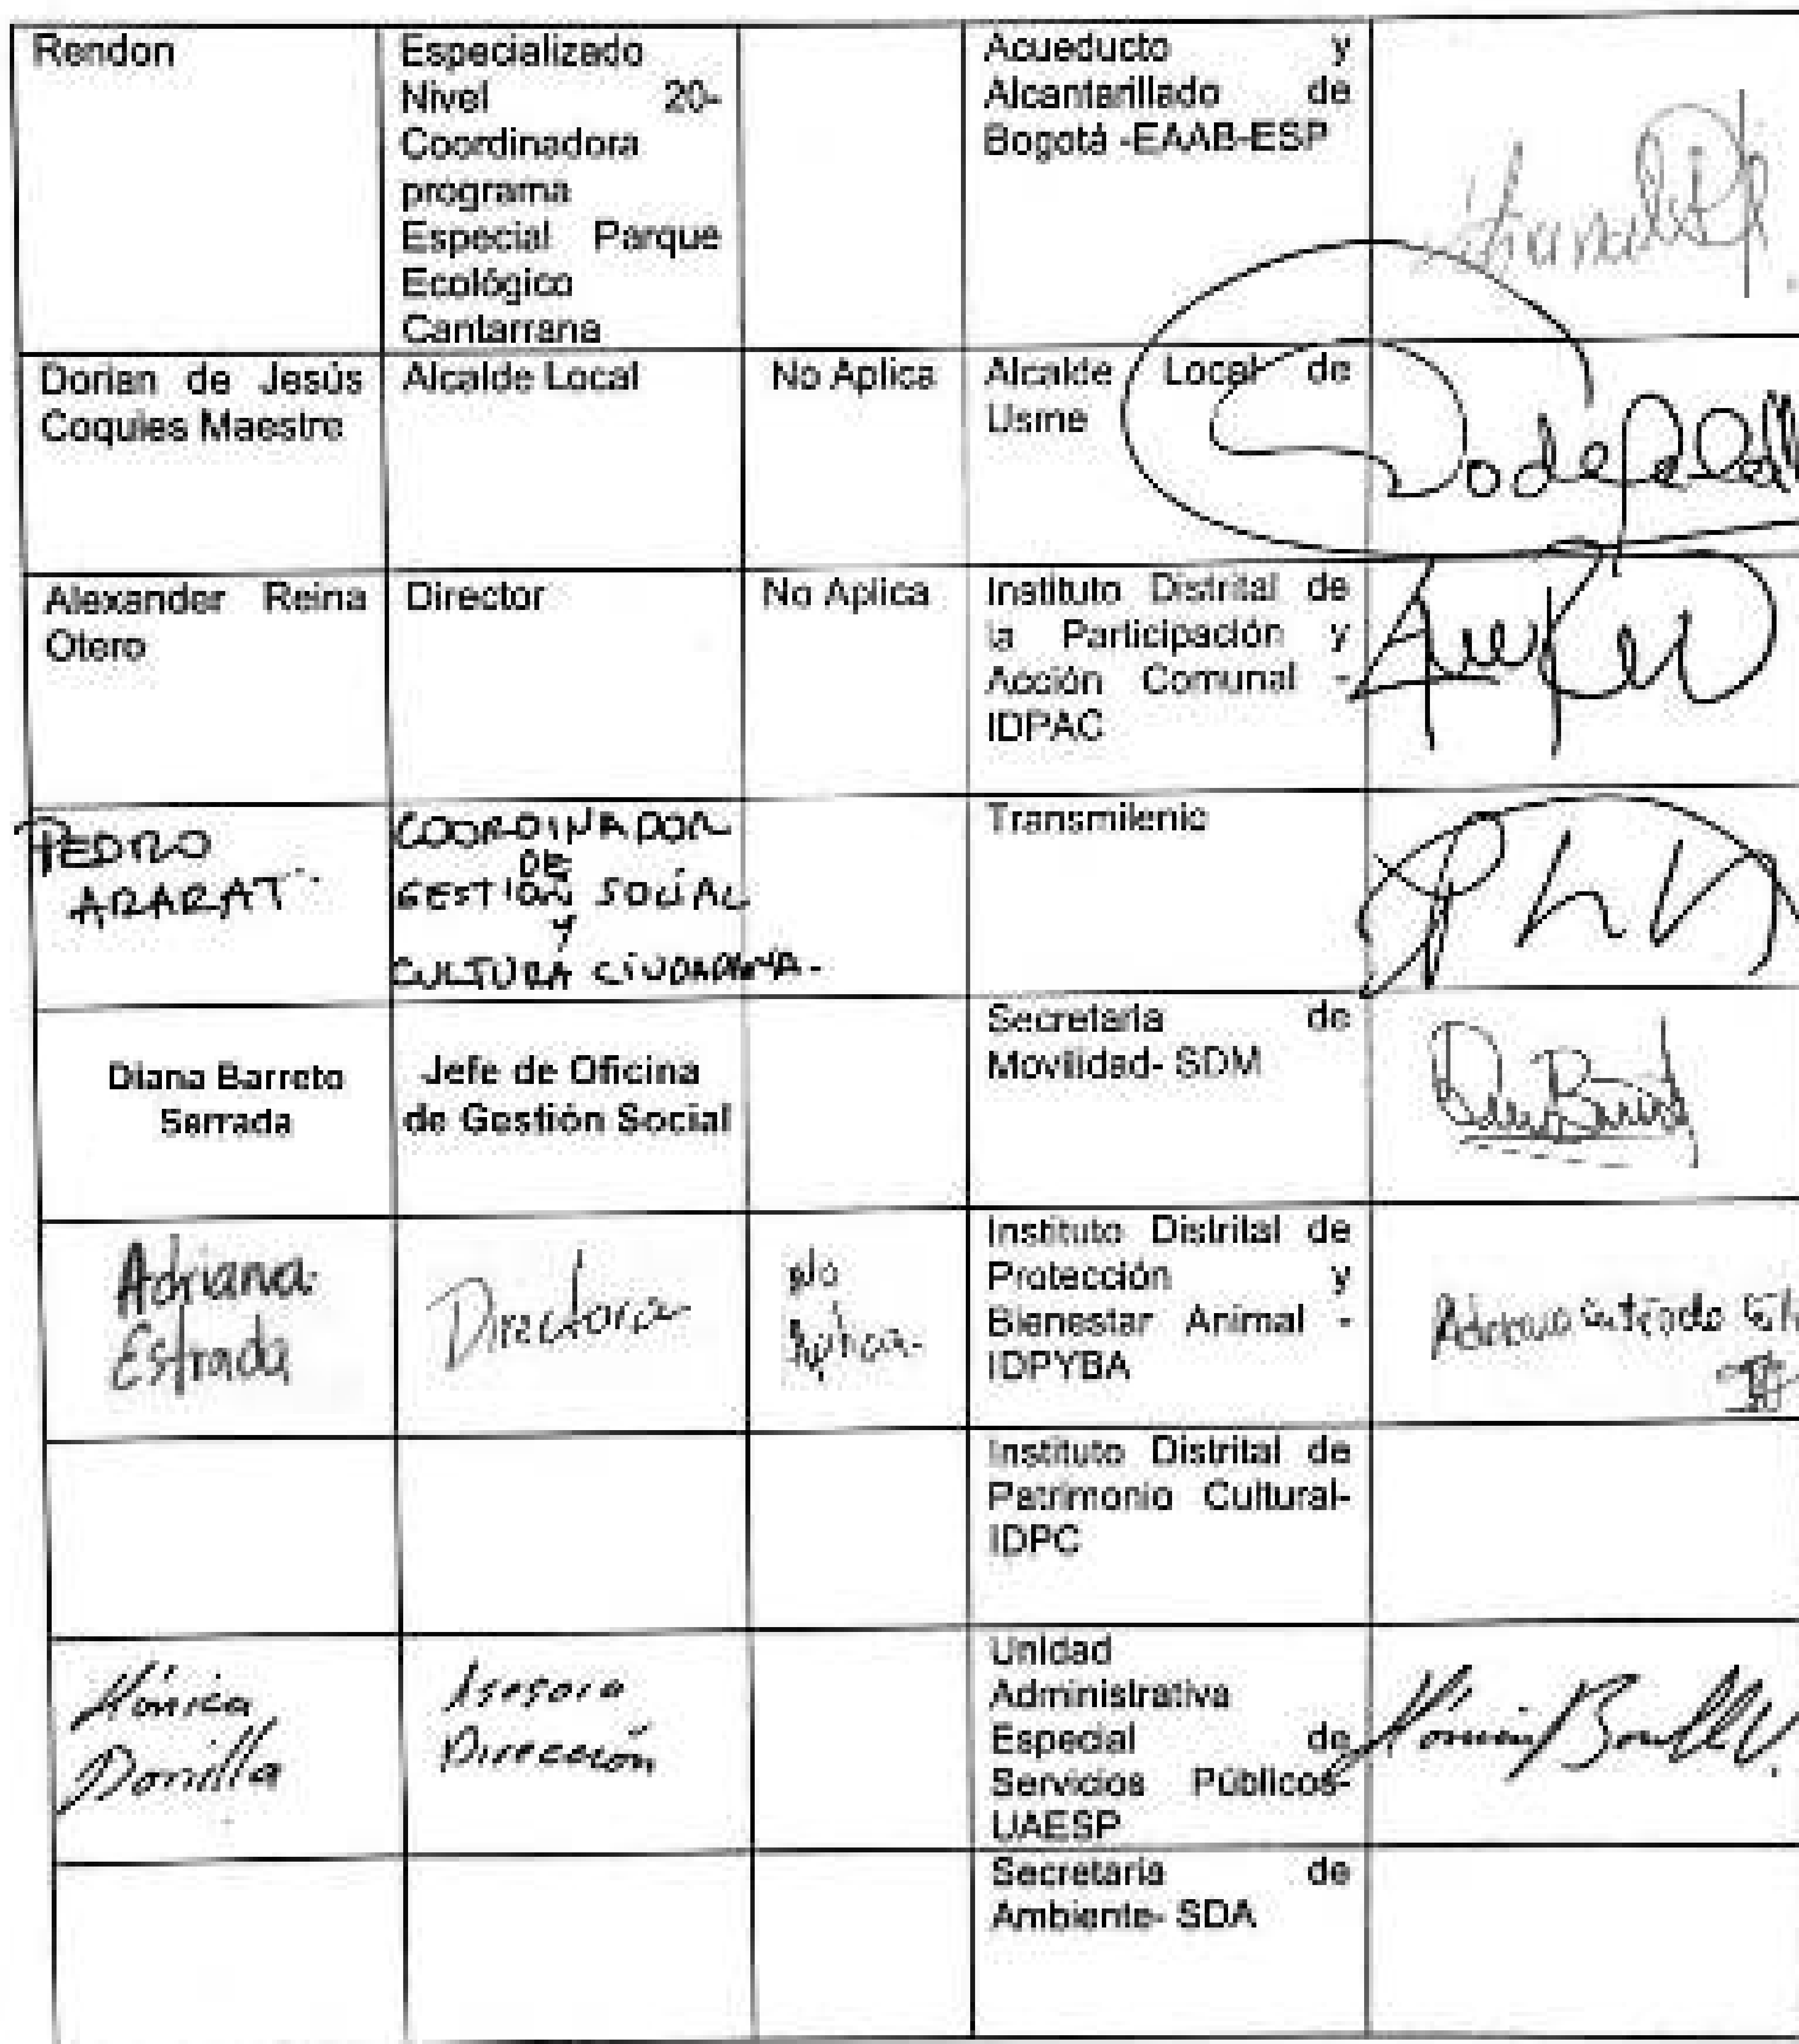 Rendon
Especializado
Nivel 20-
Coordinadora
programa
Especial Parque
Ecológico
Cantarrana
Acueducto y
Alcantarillado de
Bogotá -EAAB-ESP
Dorian de Jesús
Coquies Maestre
Alcalde Local
No Aplica
Alcalde Local de
Usme
Alexander Reina
Otero
Director
No Aplica
Instituto Distrital de
la Participación y
Acción Comunal -
IDPAC
PEDRO
ARARAT
COORDINADOR
DE
GESTIÓN SOCIAL
Y
CULTURA CIUDADANA.
Transmilenio
Diana Barreto
Serrada
Jefe de Oficina
de Gestión Social
Secretaria de
Movilidad- SDM
Adriana
Estrada
Directora
No
Aplica
Instituto Distrital de
Protección y
Bienestar Animal -
IDPYBA
Adriana Estrada
Instituto Distrital de
Patrimonio Cultural-
IDPC
Mónica
Bonilla
Asesora
Dirección
Unidad
Administrativa
Especial de
Servicios Públicos-
UAESP
Secretaria de
Ambiente- SDA